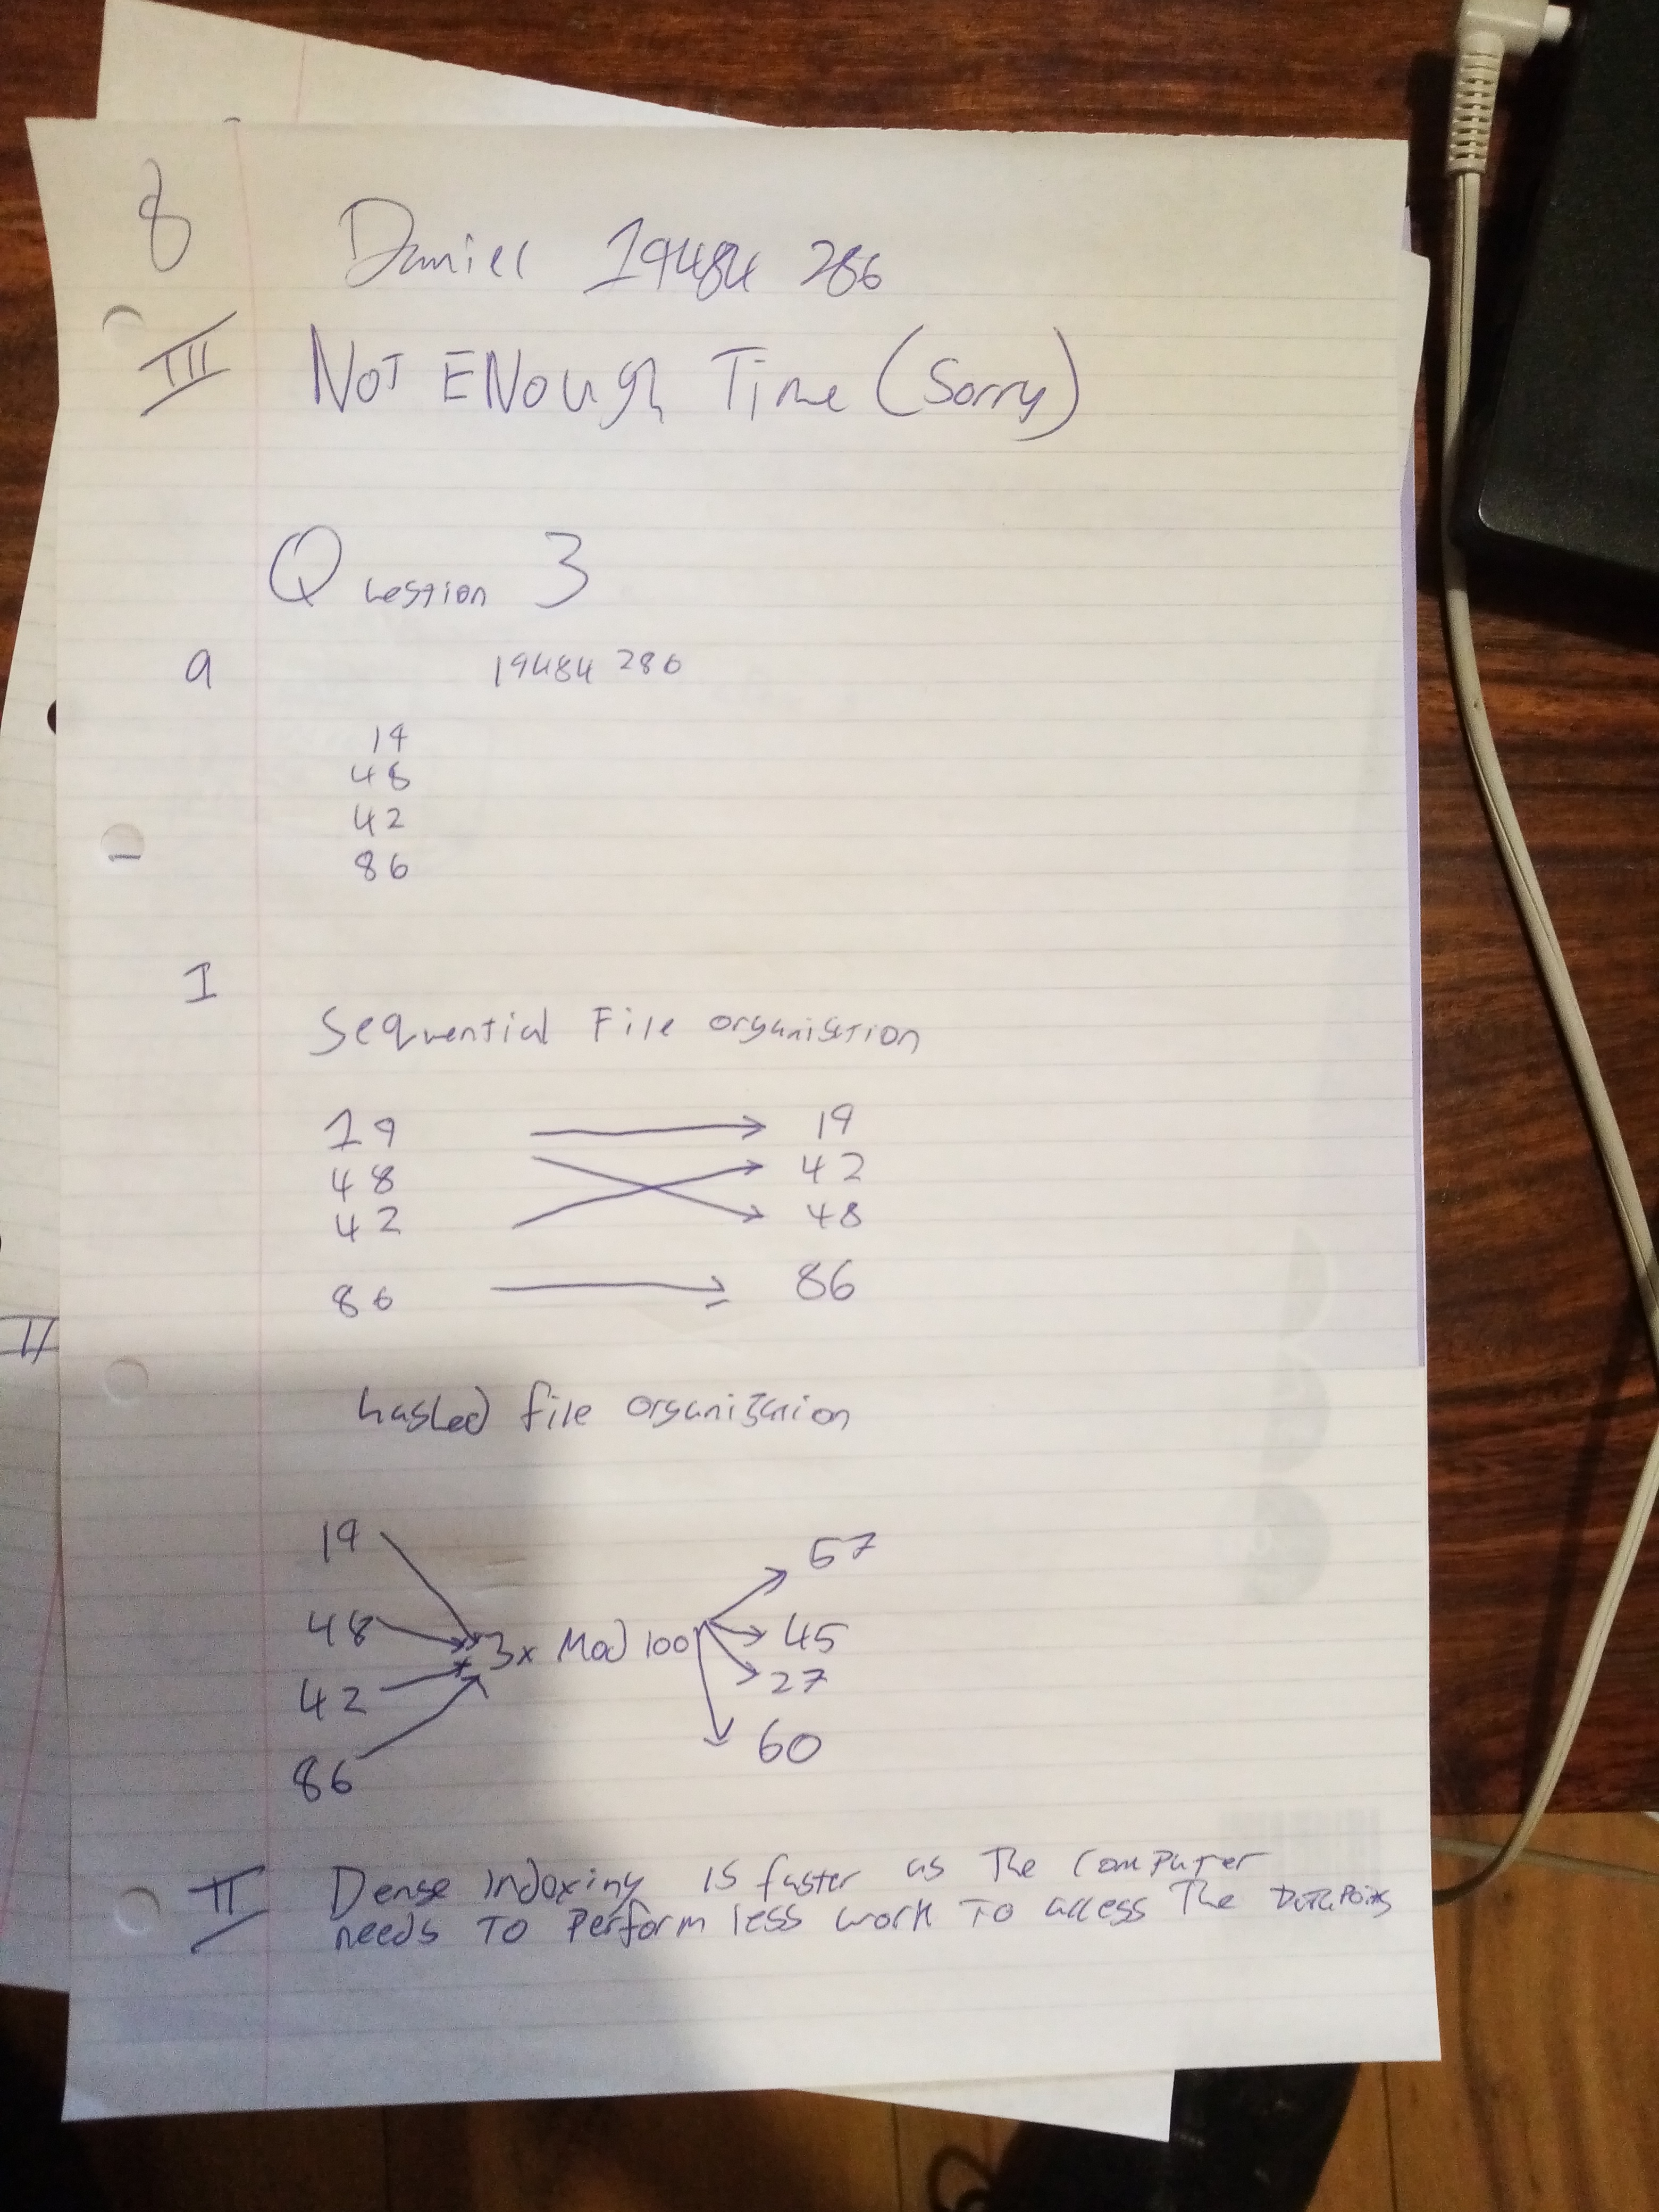 8 Daniel 19484 286
III NOT ENough Time (Sorry)
Question 3
a 19484 286
19
48
42
86
I
Sequential File organisation
19 19
48 42
42 48
86 86
hashed file organization
19 57
48 3x Mod 100 45
42 27
86 60
II Dense indexing is faster as The computer
needs To Perform less work To access The DataPoints
II